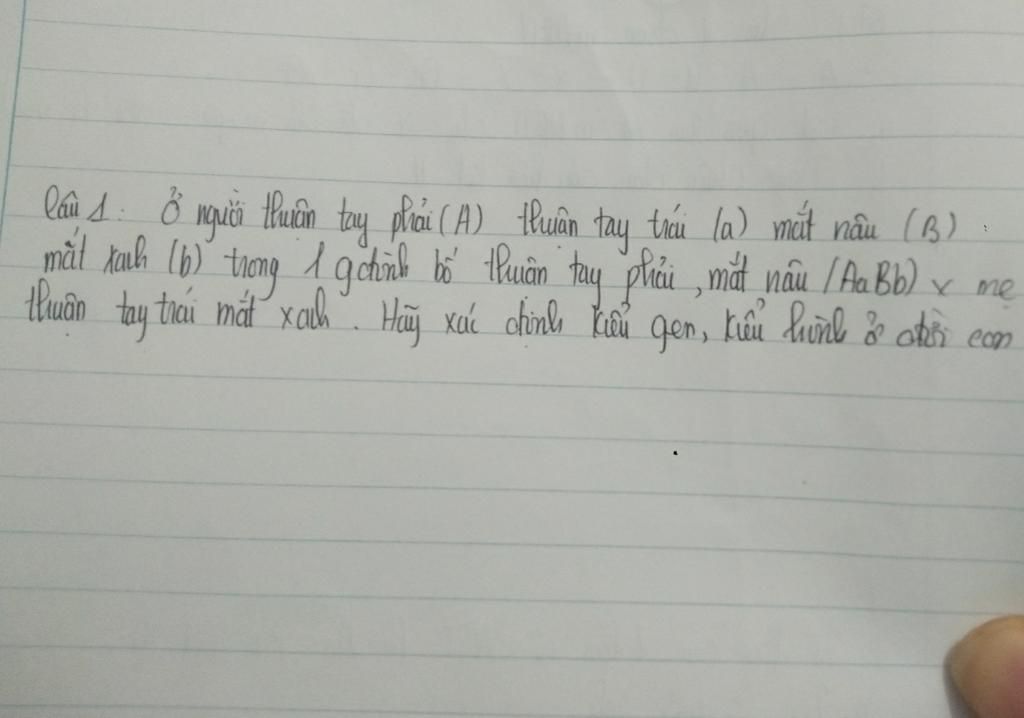 Câu 1: Ở người thuận tay phải (A) thuận tay trái (a) mắt nâu (B).
mắt xanh (b) trong 1 gđình bố thuận tay phải, mắt nâu (AaBb) x mẹ
thuận tay trái mắt xanh. Hãy xác định kiểu gen, kiểu hình ở đời con